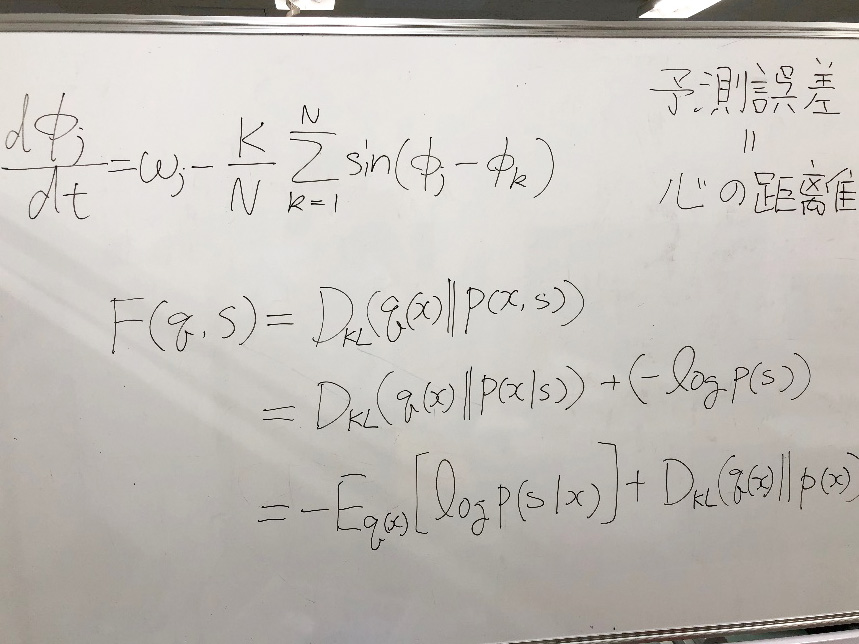 dφj/dt = ωj - K/N Σ_{k=1}^{N} sin(φj - φk)
予測誤差
=
心の距離
F(q, s) = D_KL(q(x)||p(x, s))
= D_KL(q(x)||p(x|s)) + (-log p(s))
= -E_q(x)[log p(s|x)] + D_KL(q(x)||p(x)